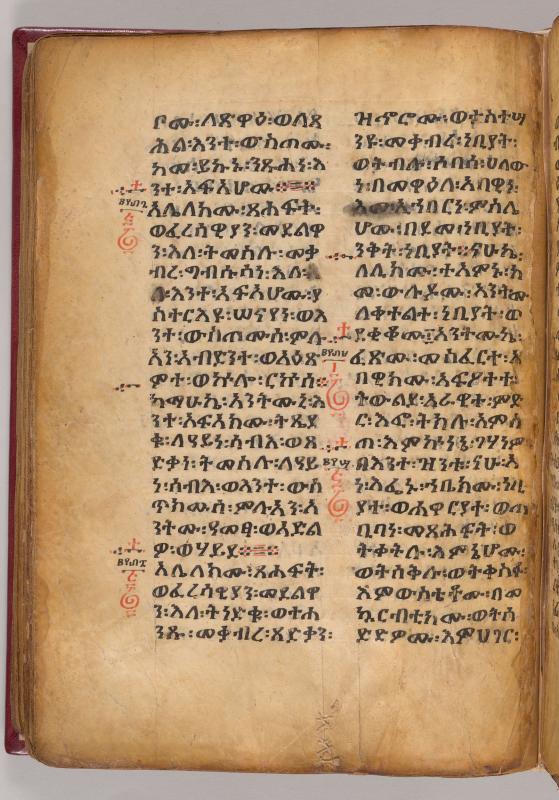 ቦሙ፡ለጽዋዕ፡ወለጻ
ሕል፡እንተ፡ውስጠሙ፡
ከመ፡ይኩኑ፡ንጹሐነ፡እ
ንተ፡አፍአሆሙ።
አሌለክሙ፡ጸሐፍት፡
ወፈረሳዊያን፡መደልዋ
ን፡እለ፡ትመስሉ፡መቃ
ብረ፡ግብሱሳነ፡እለ፡
እንተ፡አፍአሆሙ፡ያ
ስተርእዩ፡ሠናያነ፡ወእ
ንተ፡ውስጠሙሰ፡ምሉ
አን፡አብድንተ፡ወአዕጽ
ምተ፡ወኵሎ፡ርኵሰ።
ካማሁኬ፡አንትሙኒ፡እ
ንተ፡አፍአክሙ፡ትጼድ
ቁ፡ለዓይነ፡ሰብእ፡ወጻ
ድቃነ፡ትመስሉ፡ለዓይ
ነ፡ሰብእ፡ወእንተ፡ውስ
ጥክሙሰ፡ምሉአን፡አ
ንትሙ፡ዓመፃ፡ወአድል
ዎ፡ወሃይደ።
አሌለክሙ፡ጸሐፍት፡
ወፈረሳዊያን፡መደልዋ
ን፡እለ፡ትነድቁ፡ወተሐ
ንጹ፡መቃብረ፡ጻድቃን፡
ዝኆሮሙ፡ወትስትሣ
ንዩ፡መቃብረ፡ነቢያት፡
ወትብሉ፡ሶበሰ፡ሀለው
ነ፡በመዋዕለ፡አበዊነ፡
እመ፡ኢነበርነ፡ምስሌ
ሆሙ፡በደመ፡ነቢያት፡
ንቅት፡ነቢያት።ናሁኬ፡
ለሊክሙ፡ተአምኑ፡ከ
መ፡ውሉዶሙ፡አንትሙ
ለቀተልተ፡ነቢያት፡ወ
ደቂቆሙ፡አንትሙኬ፡
ፈጽሙ፡መስፈርተ፡አ
በዊክሙ፡አፍዖተ፡
ትውልደ፡አራዊተ፡ምድ
ር፡እፎ፡ትክሉ፡አምስ
ጦ፡እምኵነኔ፡ገሃነም
በእንተ፡ዝንቱ፡ናሁ፡አ
ነ፡እፌኑ፡ኀቤክሙ፡ነቢ
ያተ፡ወሐዋርያተ፡ወጠ
ቢባነ፡መጸሕፍተ፡ወ
ትቀትሉ፡እምኔሆሙ፡
ወትሰቅሉ፡ወትቀስፉ፡
እምውስቴቶሙ፡በመ
ኳርብቲክሙ፡ወትሰ
ድድዎሙ፡እምሀገር፡